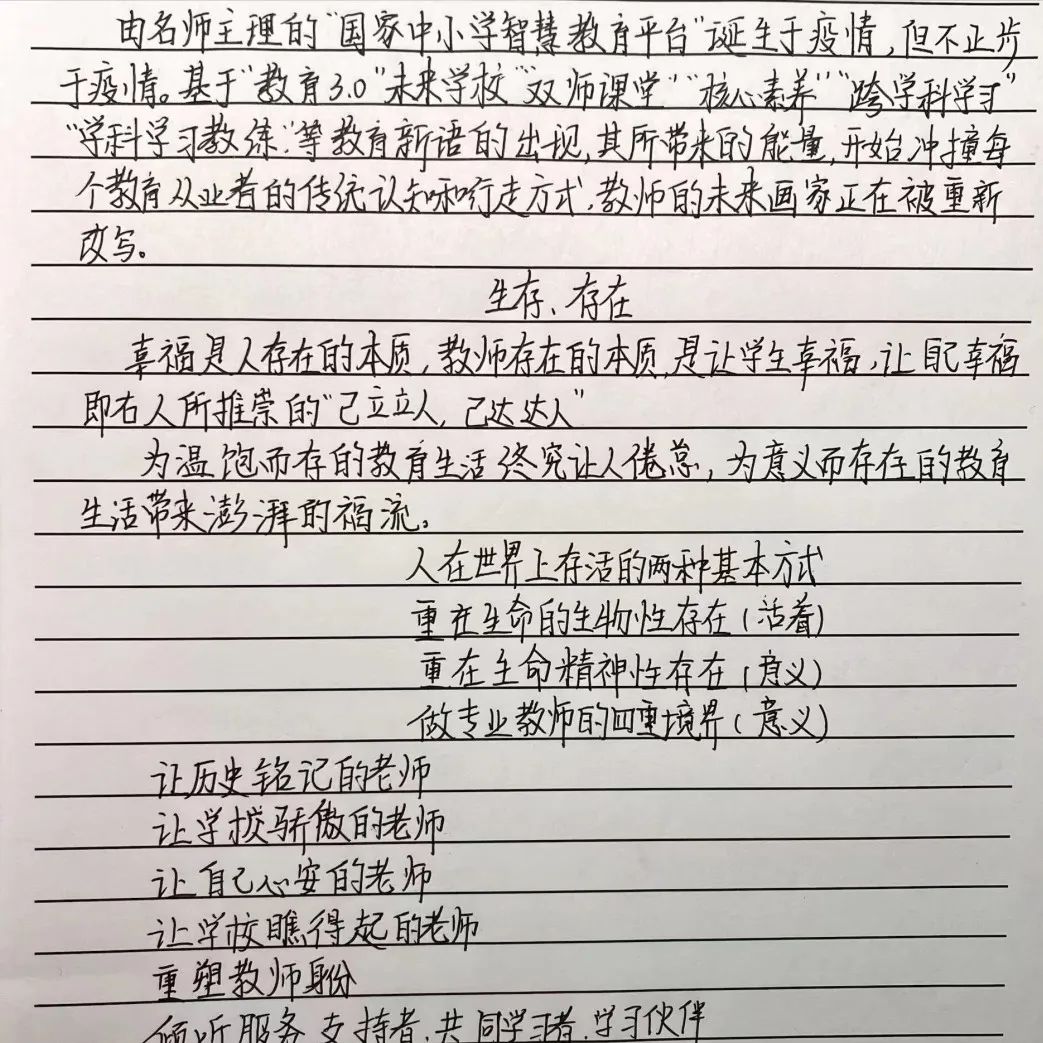 由名师主理的“国家中小学智慧教育平台”诞生于疫情，但不止步
于疫情。基于“教育3.0”“未来学校”“双师课堂”“核心素养”“跨学科学习”
“学科学习教练”等教育新语的出现，其所带来的能量，开始冲撞每
个教育从业者的传统认知和行走方式，教师的未来画家正在被重新
改写。
生存、存在
幸福是人存在的本质，教师存在的本质，是让学生幸福，让自己幸福
即右人所推崇的“己立立人，己达达人”
为温饱而存的教育生活终究让人倦怠，为意义而存在的教育
生活带来澎湃的福流。
人在世界上存活的两种基本方式
重在生命的生物性存在（活着）
重在生命精神性存在（意义）
做专业教师的四重境界（意义）
让历史铭记的老师
让学校骄傲的老师
让自己心安的老师
让学校瞧得起的老师
重塑教师身份
倾听服务支持者，共同学习者，学习伙伴